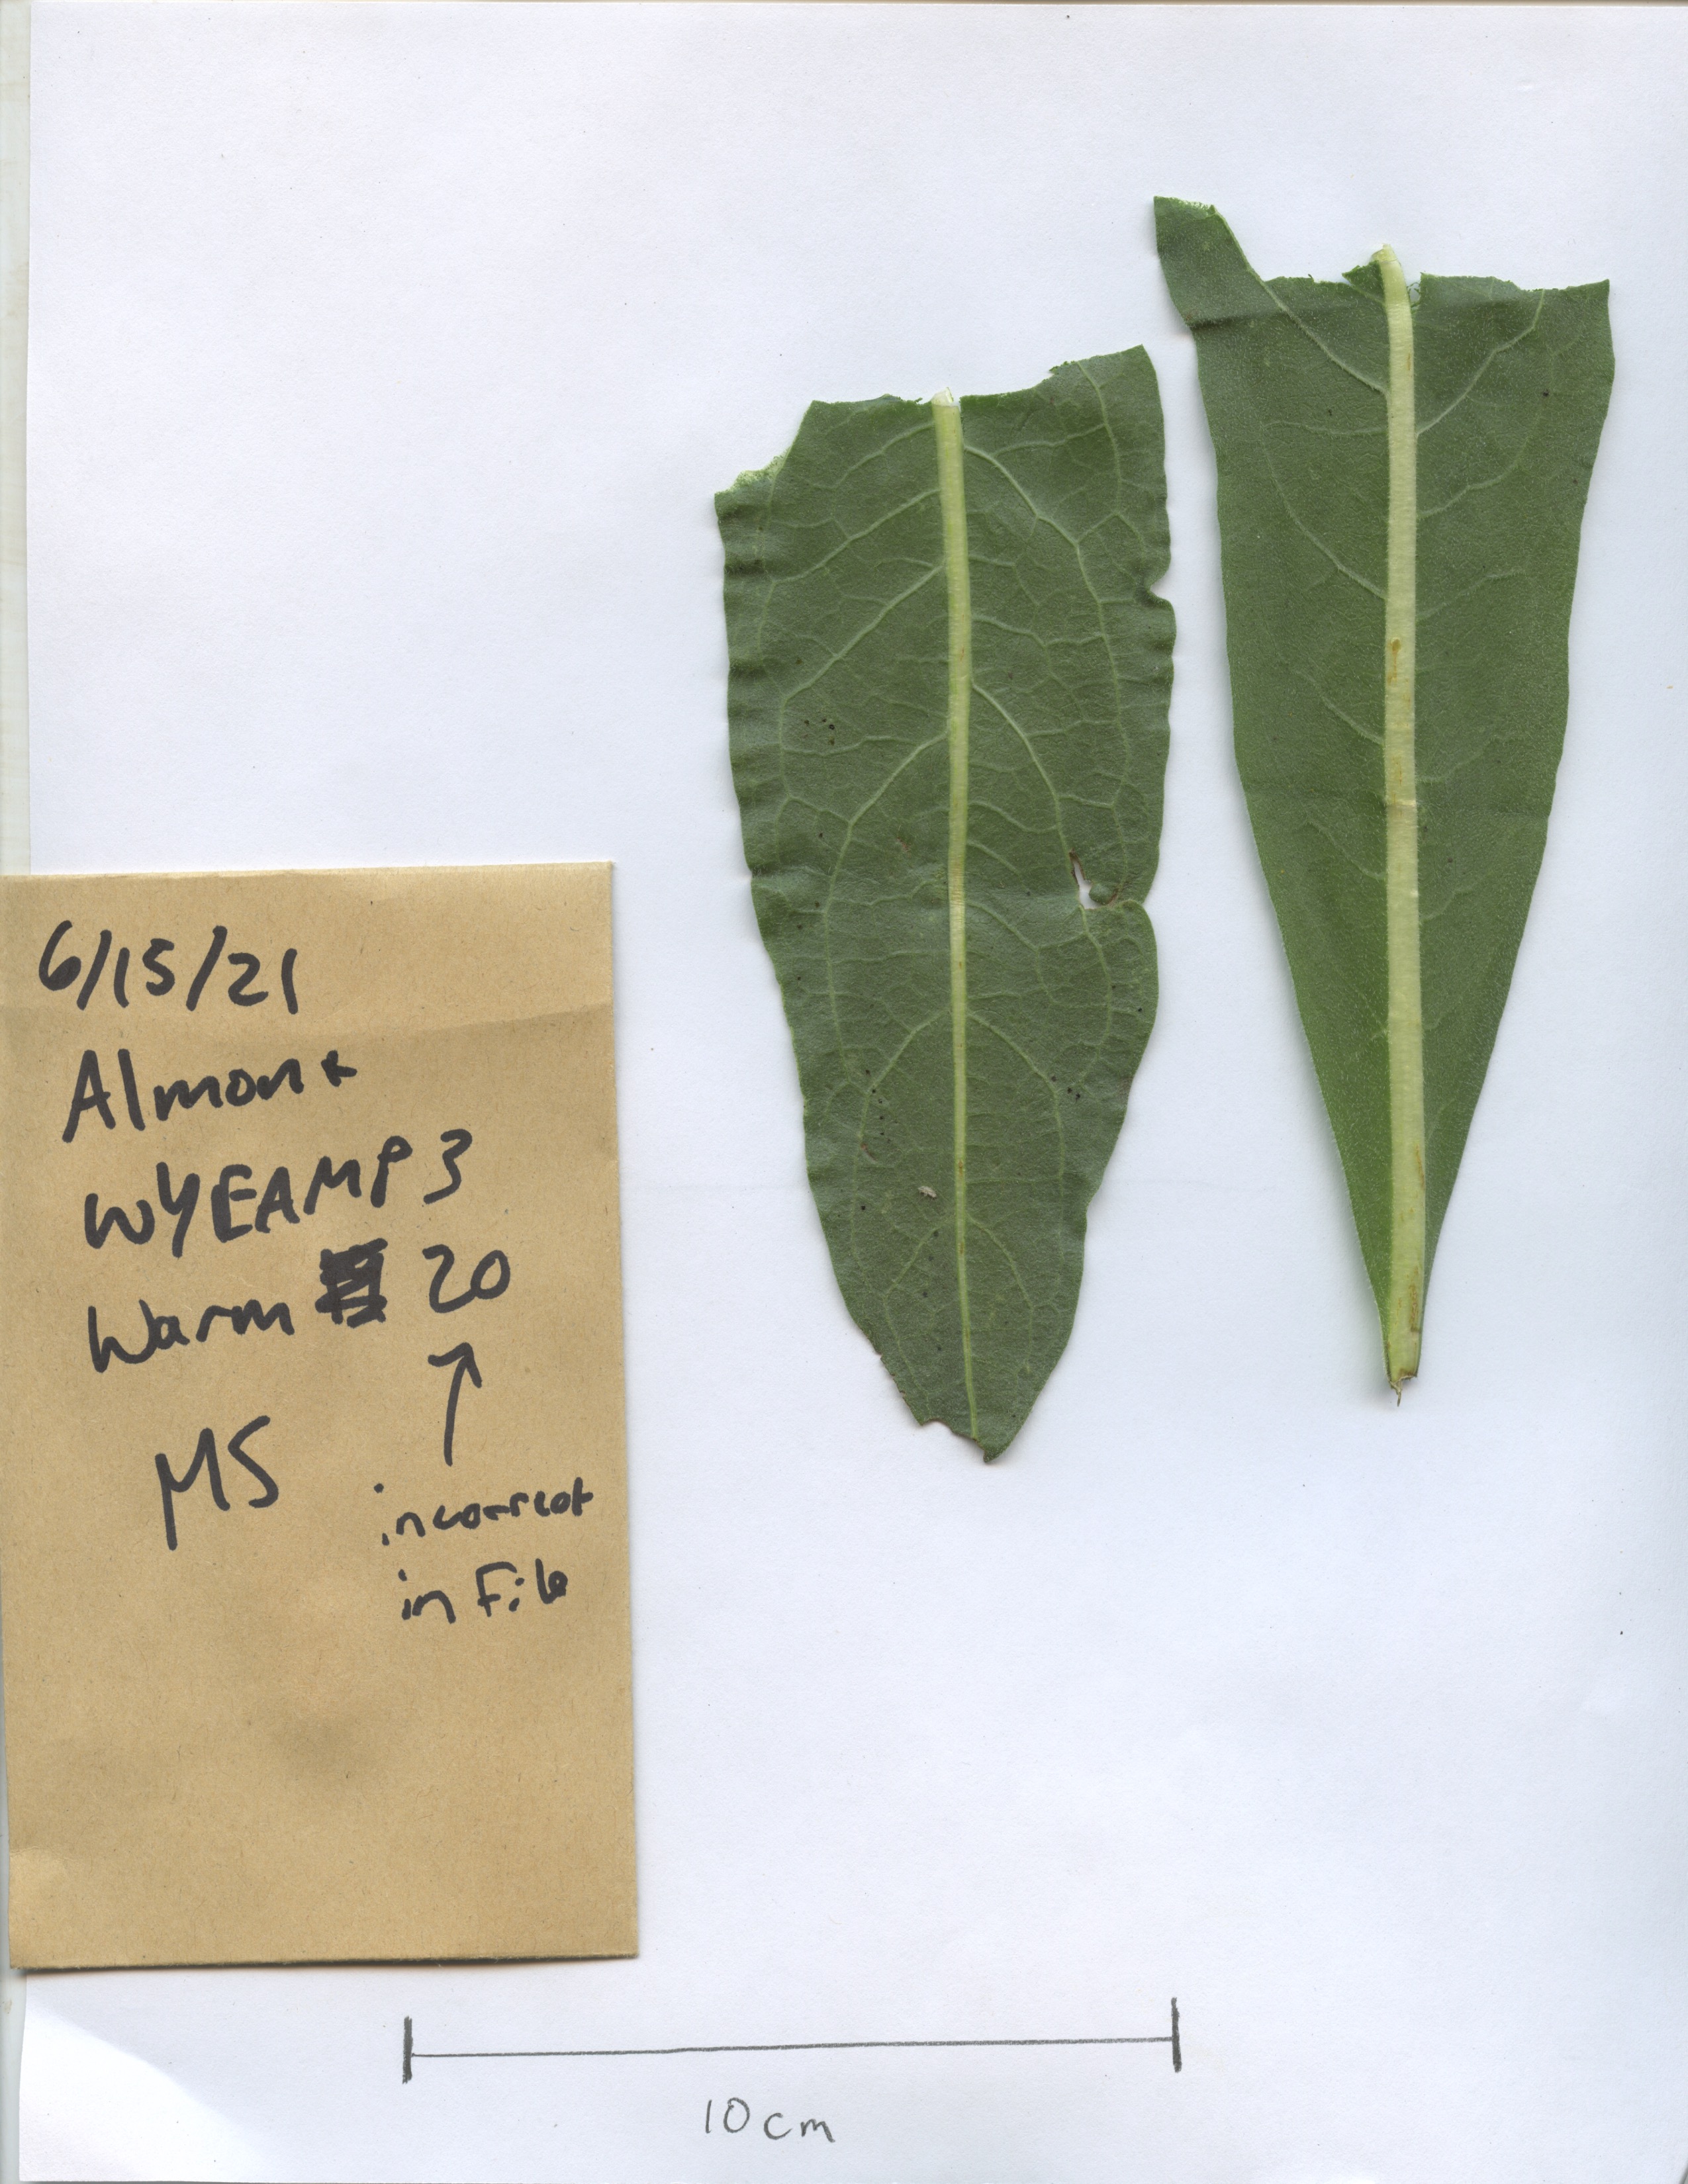 6/15/21
Almont
WYEAMP3
Warm 20
MS
incorrect
in File
10cm